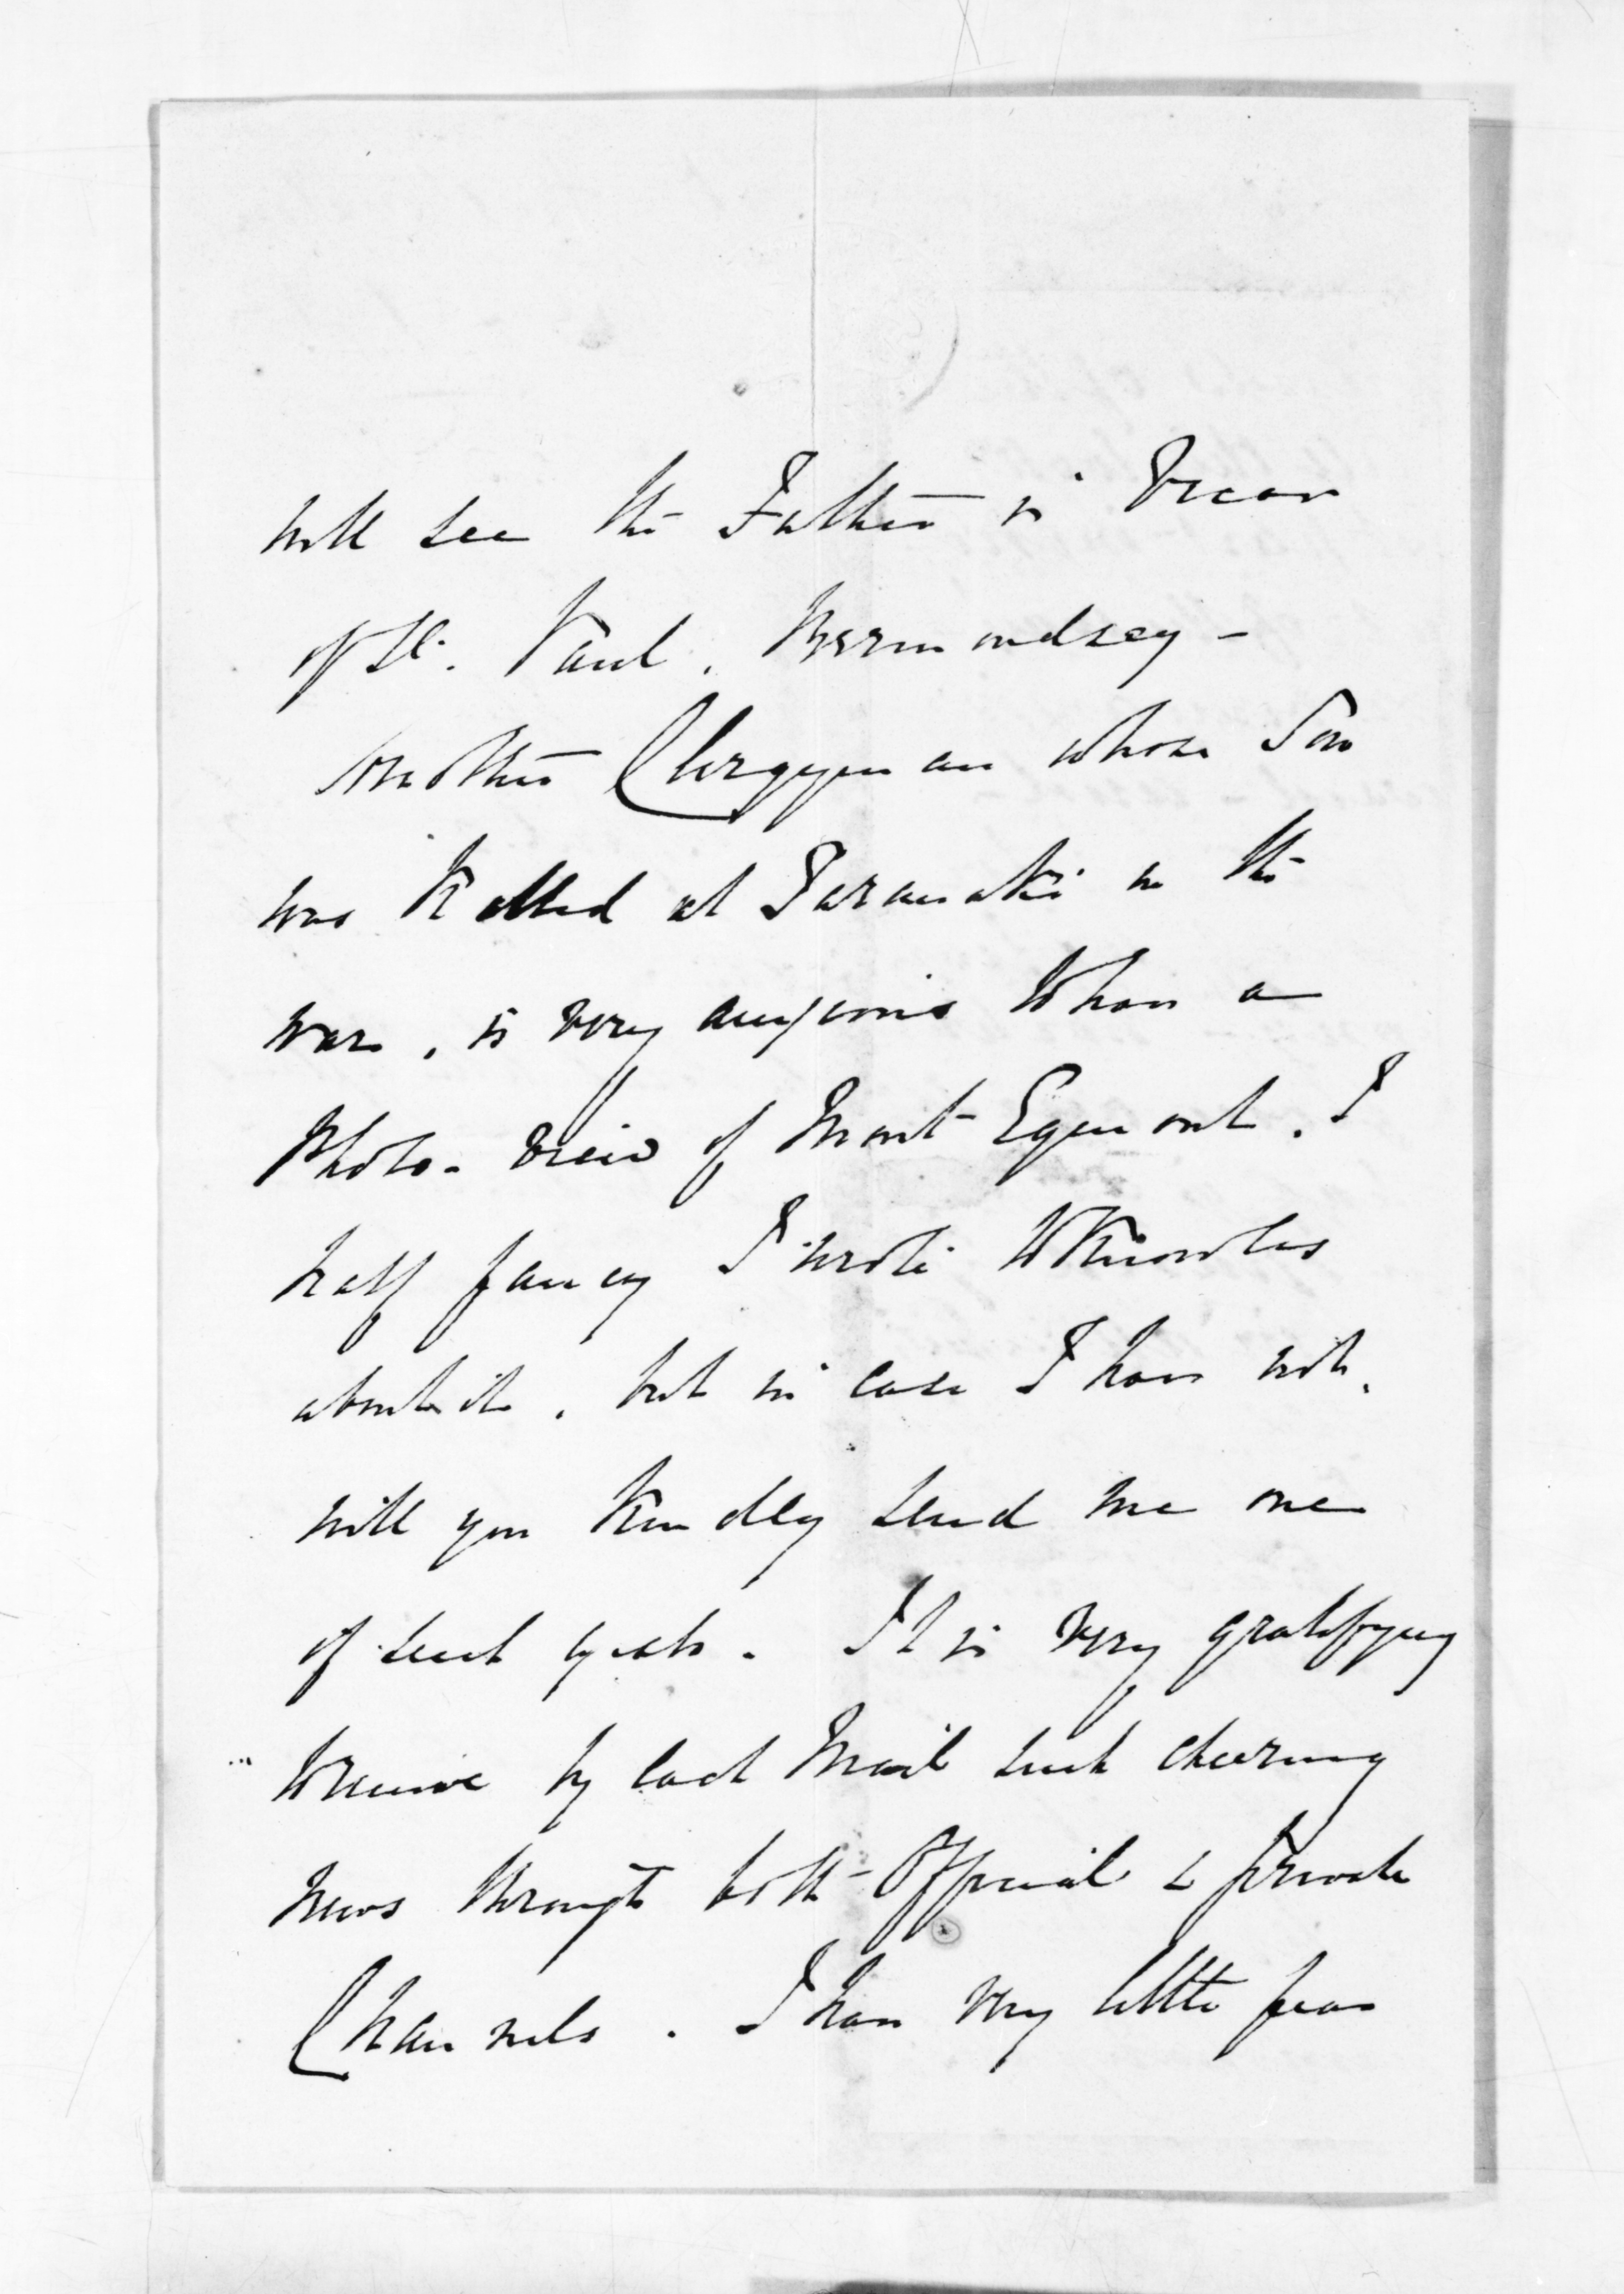 will see the Father is Vicar
of St. Paul, Bermondsey -
Another Clergyman whose Son
was Killed at Taranaki in the
war, is very anxious to have a
Photo-view of Mount Egmont. I
half fancy I wrote to Knowles
about it, but in case I have not,
will you kindly send me one
of such. It is very gratifying
to receive by last Mail such cheering
news through both Official & private
Channels. I have very little fear